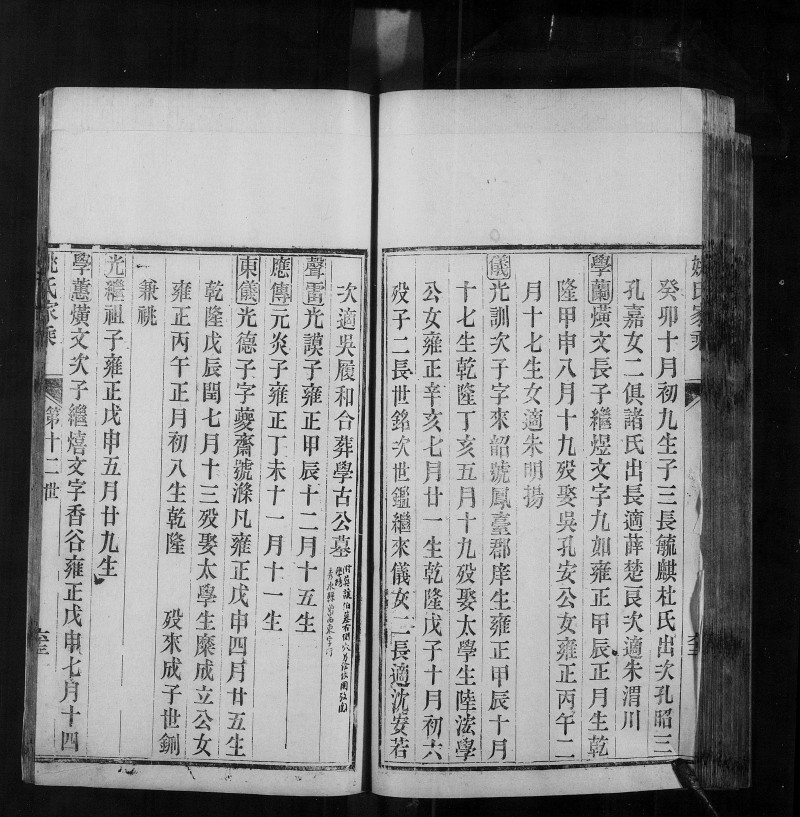 姚氏家乘
癸卯十月初九生子三長毓麒杜氏出次孔昭三
孔嘉女二俱諸氏出長適薛楚辰次適朱渭川
學蘭熿文長子繼煜文字九如雍正甲辰正月生乾
隆甲申八月十九歿娶吳孔安公女雍正丙午二
月十七生女適朱明揚
儀光訓次子字來韶號鳳臺郡庠生雍正甲辰十月
十七生乾隆丁亥五月十九歿娶太學生陸法學
公女雍正辛亥七月廿一生乾隆戊子十月初六
歿子二長世銘次世鑑繼來儀女二長適沈安若
次適吳履和合葬學古公墓
聲雷光謨子雍正甲辰十二月十五生
應傳元炎子雍正丁未十一月十一生
東儀光德子字夔齋號滌凡雍正戊申四月廿五生
乾隆戊辰閏七月十三歿娶太學生糜成立公女
雍正丙午正月初八生乾隆 歿來成子世鉶
兼祧
光繼祖子雍正戊申五月廿九生
學蕙熿文次子繼熺文字香谷雍正戊申七月十四
姚氏家乘 第十二世